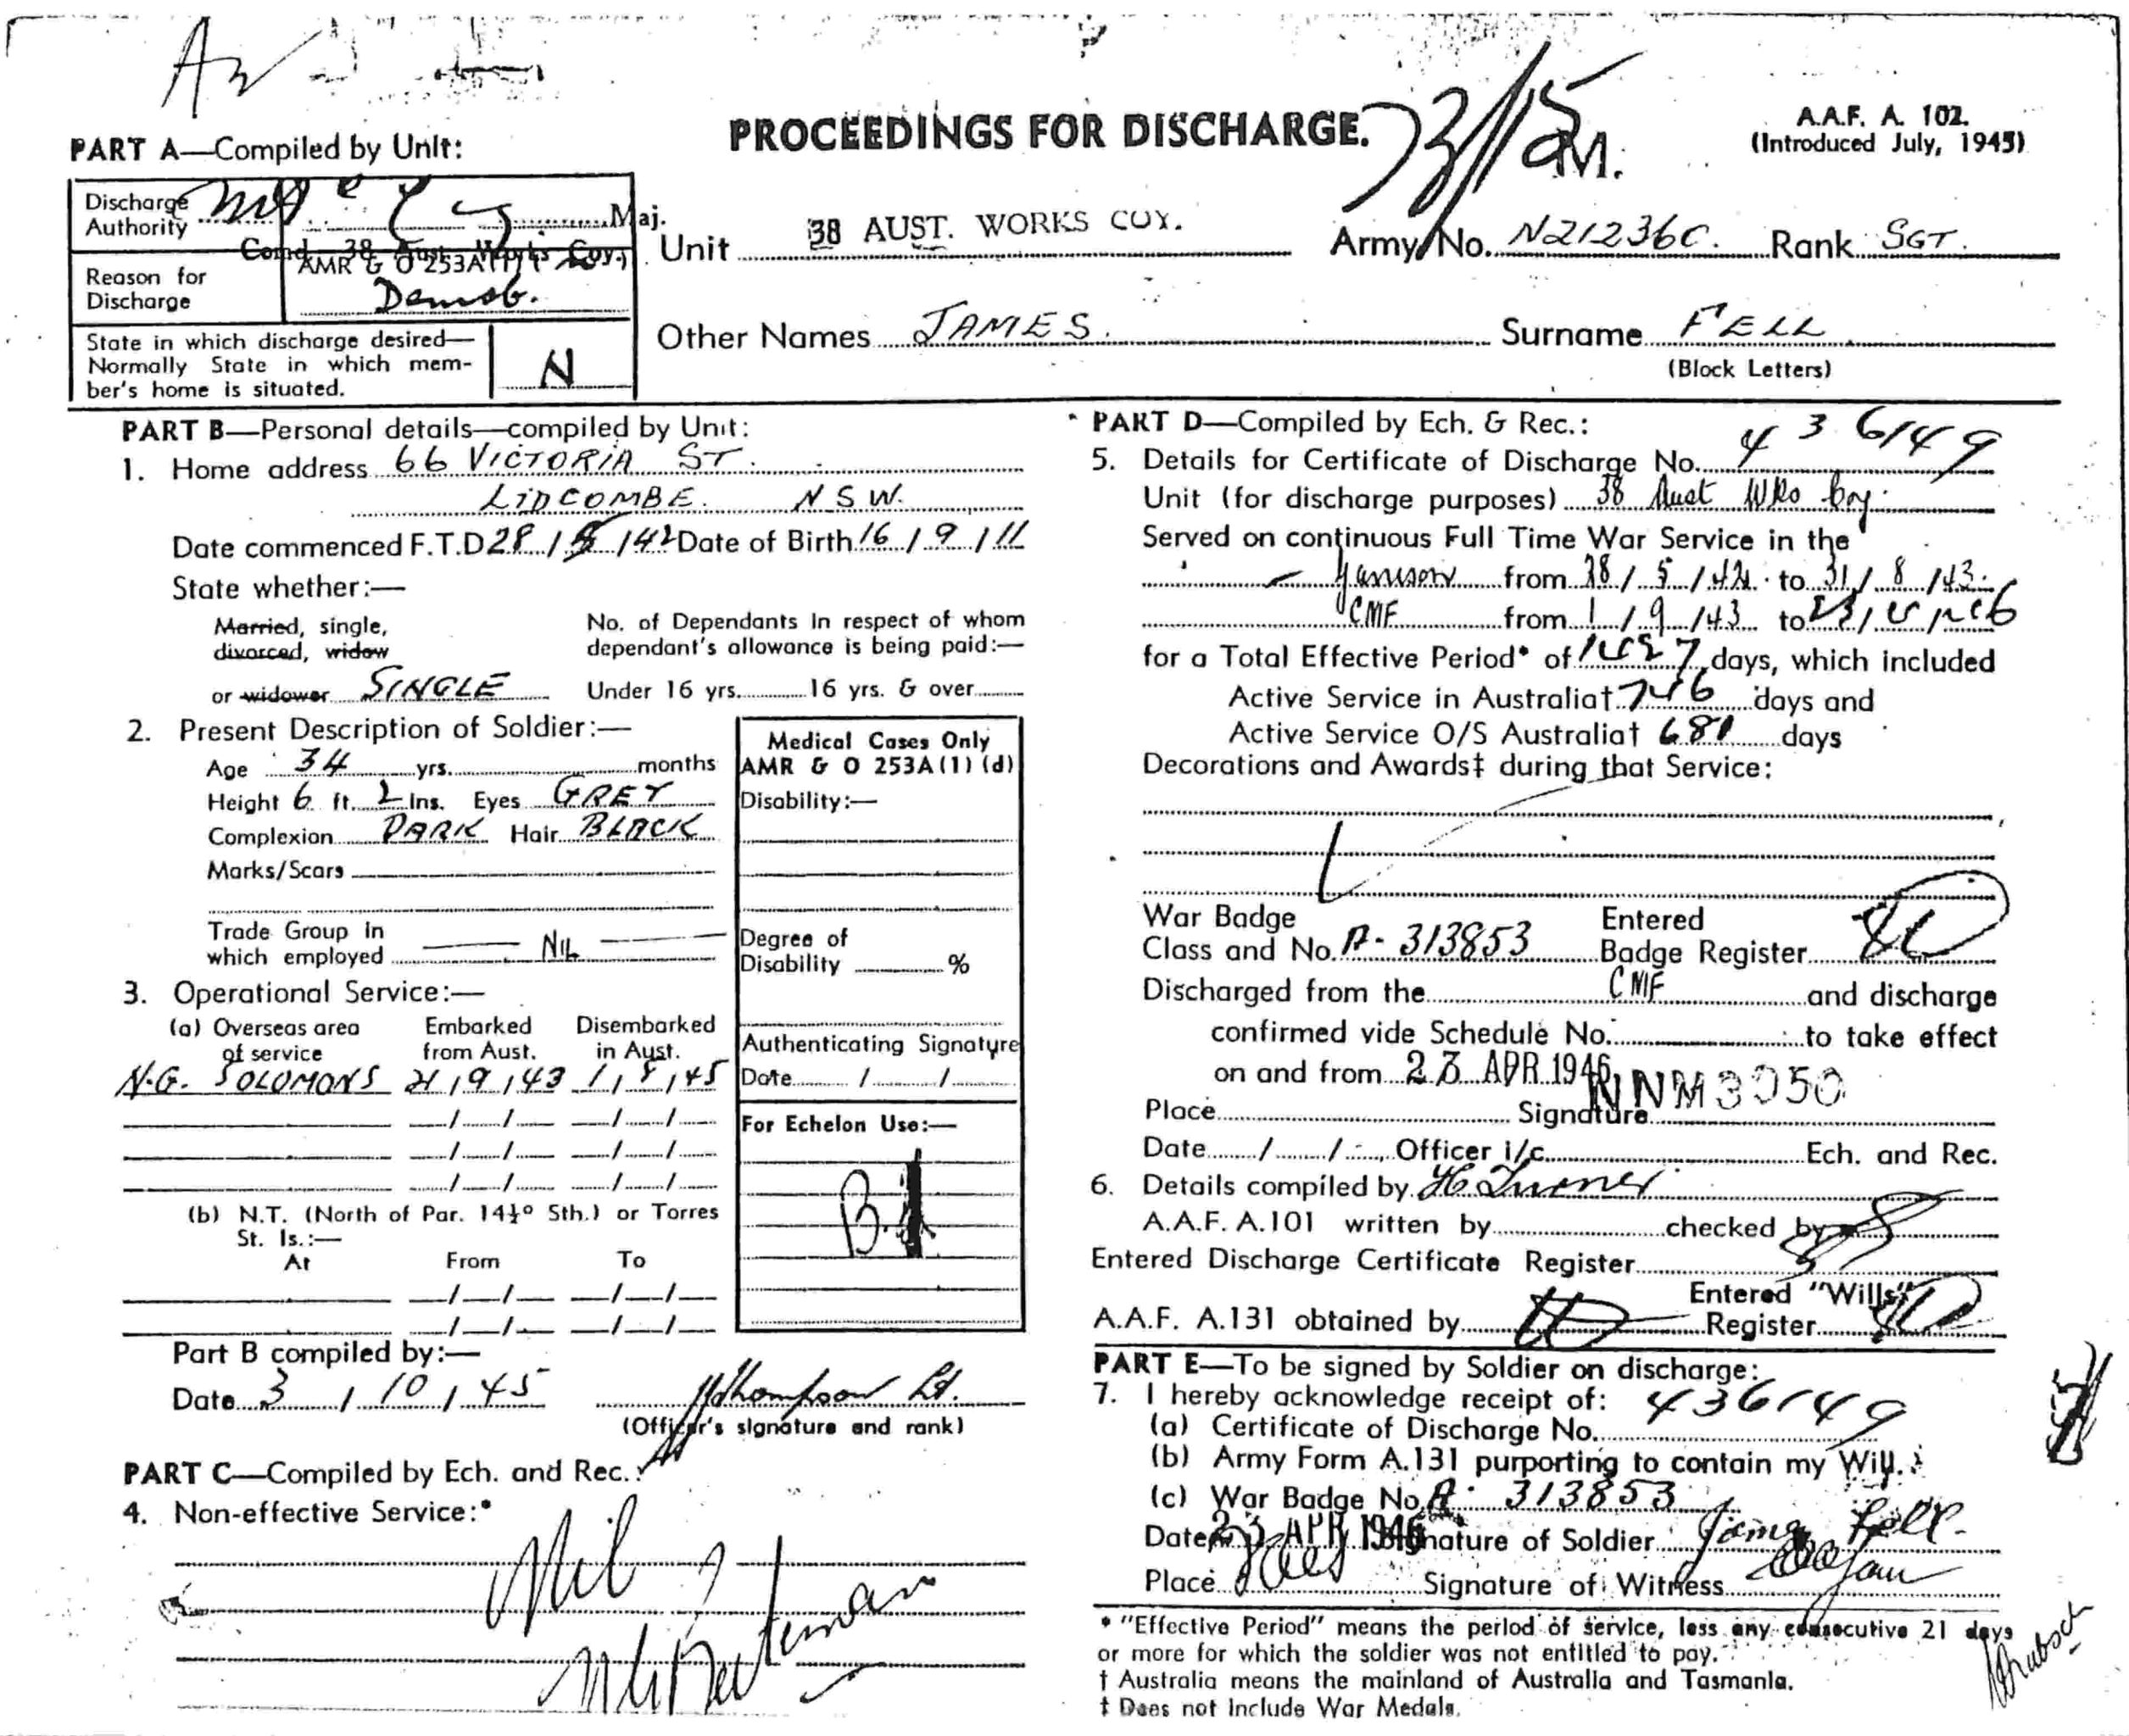 PROCEEDINGS FOR DISCHARGE.
A.A.F. A. 102.
(Introduced July, 1945)
PART A—Compiled by Unit:
Discharge Authority Maj.
Comd. 38 Aust. Works Coy.
Reason for Discharge AMR & O 253A(1)
Demob.
State in which discharge desired—
Normally State in which mem-
ber's home is situated. N
Unit 38 AUST. WORKS COY. Army No. N21236C. Rank SGT.
Other Names JAMES. Surname FELL
(Block Letters)
PART B—Personal details—compiled by Unit:
1. Home address 66 VICTORIA ST.
LIDCOMBE. N S W.
Date commenced F.T.D 28/5/42 Date of Birth 16/9/11
State whether:—
Married, single,
divorced, widow
or widower SINGLE
No. of Dependants in respect of whom
dependant's allowance is being paid:—
Under 16 yrs. 16 yrs. & over
2. Present Description of Soldier:—
Age 34 yrs. months
Height 6 ft. 2 Ins. Eyes GREY
Complexion DARK Hair BLACK
Marks/Scars
Trade Group in
which employed NIL
Medical Cases Only
AMR & O 253A(1) (d)
Disability:—
Degree of
Disability %
Authenticating Signature
Date / /
For Echelon Use:—
3. Operational Service:—
(a) Overseas area of service Embarked from Aust. Disembarked in Aust.
N.G. SOLOMONS 21/9/43 1/8/45
(b) N.T. (North of Par. 14½° Sth.) or Torres
St. Is.:—
At From To
Part B compiled by:—
Date 3/10/45 Thompson Lt.
(Officer's signature and rank)
PART C—Compiled by Ech. and Rec.:
4. Non-effective Service:*
Nil
PART D—Compiled by Ech. & Rec.:
5. Details for Certificate of Discharge No. 436149
Unit (for discharge purposes) 38 Aust Wks Coy.
Served on continuous Full Time War Service in the
Garrison from 28/5/42 to 31/8/43.
CMF from 1/9/43 to 23/
for a Total Effective Period* of days, which included
Active Service in Australia† 746 days and
Active Service O/S Australia† 681 days
Decorations and Awards‡ during that Service:
War Badge
Class and No. A- 313853
Entered
Badge Register
Discharged from the CMF and discharge
confirmed vide Schedule No. to take effect
on and from 23 APR 1946
Place Signature
Date / / Officer i/c Ech. and Rec.
6. Details compiled by H Turner
A.A.F. A.101 written by checked by
Entered Discharge Certificate Register
A.A.F. A.131 obtained by Entered "Wills" Register
PART E—To be signed by Soldier on discharge:
7. I hereby acknowledge receipt of: 436149
(a) Certificate of Discharge No.
(b) Army Form A.131 purporting to contain my Will.
(c) War Badge No. A. 313853
Date 23 APR 1946 Signature of Soldier James Fell.
Place Signature of Witness
* "Effective Period" means the period of service, less any consecutive 21 days
or more for which the soldier was not entitled to pay.
† Australia means the mainland of Australia and Tasmania.
‡ Does not include War Medals.